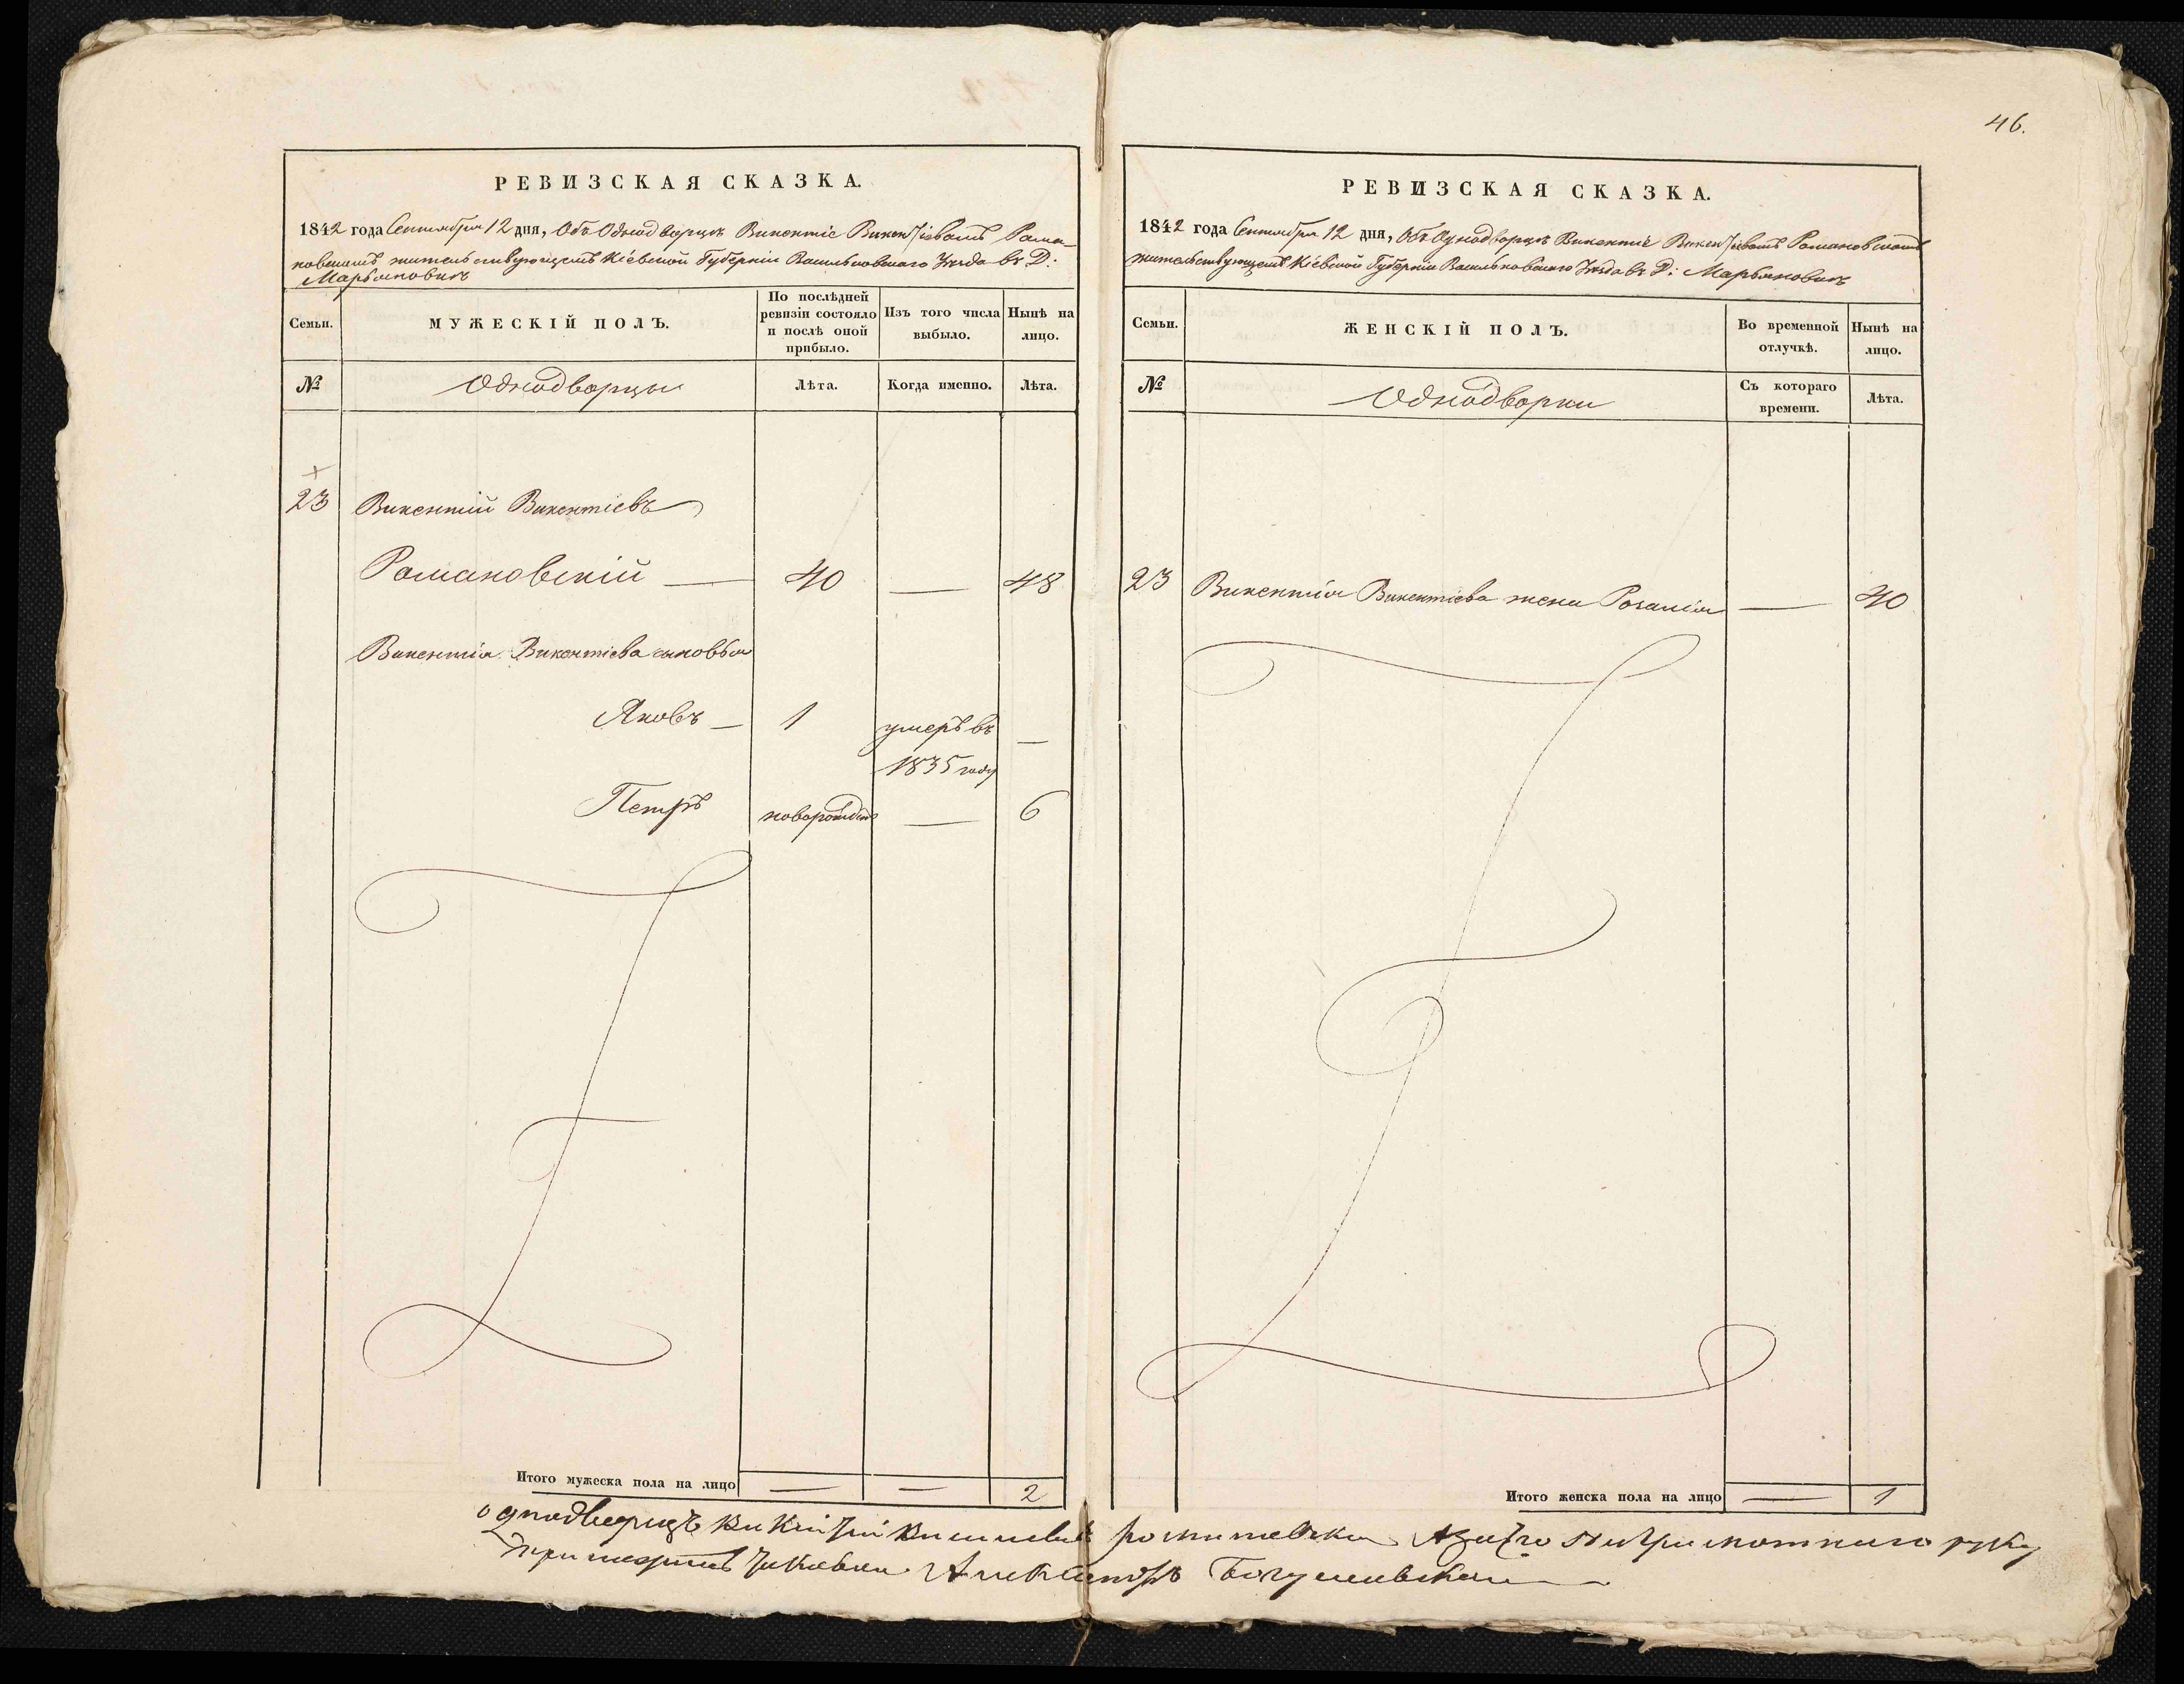 46.
РЕВИЗСКАЯ СКАЗКА.
1842 года Сентября 12 дня, Объ Однодворцѣ Викентіе Викентіевомъ Рома-
новскомъ жительствующемъ Кіевской Губерніи Васильковскаго Уѣзда въ Д:
Марьяновкѣ
Семьи.
МУЖЕСКІЙ ПОЛЪ.
По послѣдней
ревизіи состояло
и послѣ оной
прибыло.
Изъ того числа
выбыло.
Нынѣ на
лицо.
№
Однодворцы
Лѣта.
Когда именно.
Лѣта.
23 Викентій Викентіевъ
Романовскій — 40 — 48
Викентія Викентіева сыновья
Яковъ — 1 умеръ въ —
1835 году
Петръ новорожден — 6
Итого мужеска пола на лицо — — 2
РЕВИЗСКАЯ СКАЗКА.
1842 года Сентября 12 дня, Объ Однодворцѣ Викентіе Викентіевомъ Романовскомъ
жительствующемъ Кіевской Губерніи Васильковскаго Уѣзда въ Д: Марьяновкѣ
Семьи.
ЖЕНСКІЙ ПОЛЪ.
Во временной
отлучкѣ.
Нынѣ на
лицо.
№
Однодворки
Съ котораго
времени.
Лѣта.
23 Викентія Викентіева жена Розалія — 40
Итого женска пола на лицо — 1
однодворецъ руку
Богушевскій